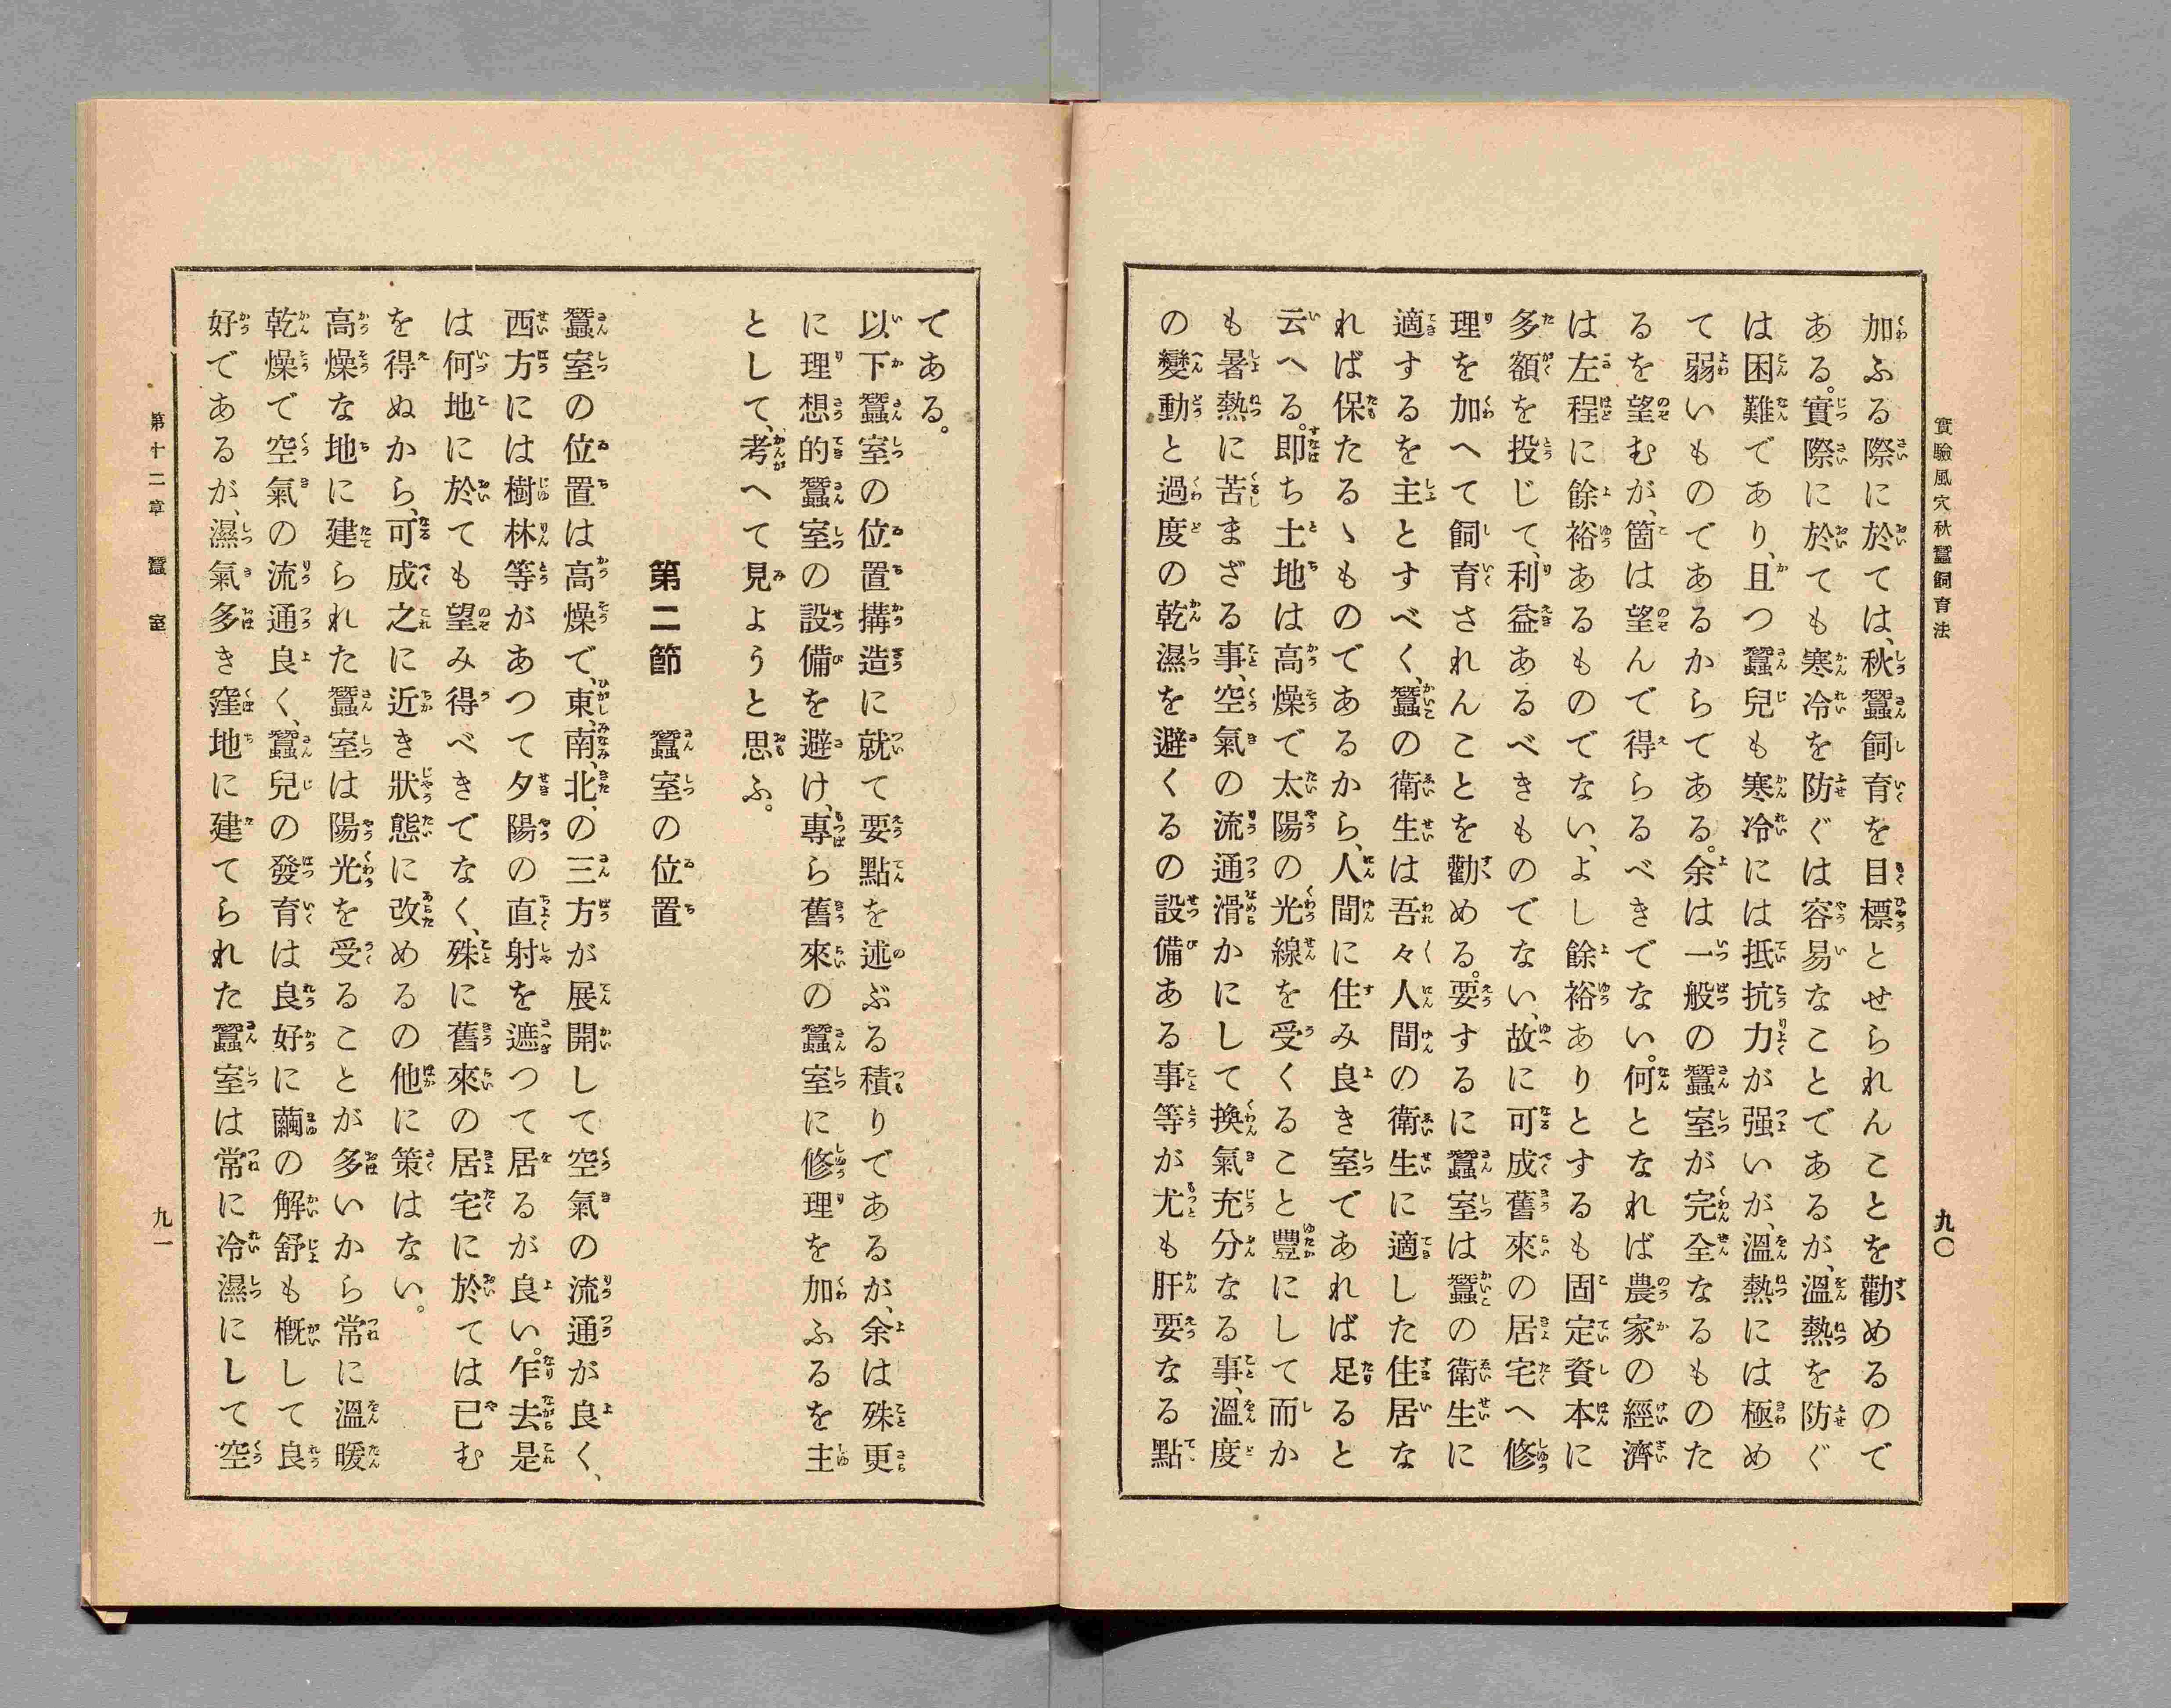 實驗風穴秋蠶飼育法
九〇
加ふる際に於ては、秋蠶飼育を目標とせられんことを勸めるので
ある。實際に於ても寒冷を防ぐは容易なことであるが、溫熱を防ぐ
は困難であり、且つ蠶兒も寒冷には抵抗力が强いが、溫熱には極め
て弱いものであるからてある。余は一般の蠶室が完全なるものた
るを望むが、箇は望んで得らるべきでない。何となれば農家の經濟
は左程に餘裕あるものでない、よし餘裕ありとするも固定資本に
多額を投じて、利益あるべきものでない、故に可成舊來の居宅へ修
理を加へて飼育されんことを勸める。要するに蠶室は蠶の衛生に
適するを主とすべく、蠶の衛生は吾々人間の衛生に適した住居な
れば保たるゝものであるから、人間に住み良き室であれば足ると
云へる。即ち土地は高燥で太陽の光線を受くること豐にして而か
も暑熱に苦まざる事、空氣の流通滑かにして換氣充分なる事、溫度
の變動と過度の乾濕を避くるの設備ある事等が尤も肝要なる點
である。
以下蠶室の位置搆造に就て要點を述ぶる積りであるが、余は殊更
に理想的蠶室の設備を避け、專ら舊來の蠶室に修理を加ふるを主
として、考へて見ようと思ふ。
第二節　蠶室の位置
蠶室の位置は高燥で、東、南、北、の三方が展開して空氣の流通が良く、
西方には樹林等があつて夕陽の直射を遮つて居るが良い。乍去是
は何地に於ても望み得べきでなく、殊に舊來の居宅に於ては已む
を得ぬから、可成之に近き狀態に改めるの他に策はない。
高燥な地に建られた蠶室は陽光を受ることが多いから常に溫暖
乾燥で空氣の流通良く、蠶兒の發育は良好に繭の解舒も槪して良
好であるが、濕氣多き窪地に建てられた蠶室は常に冷濕にして空
第十二章　蠶室
九一